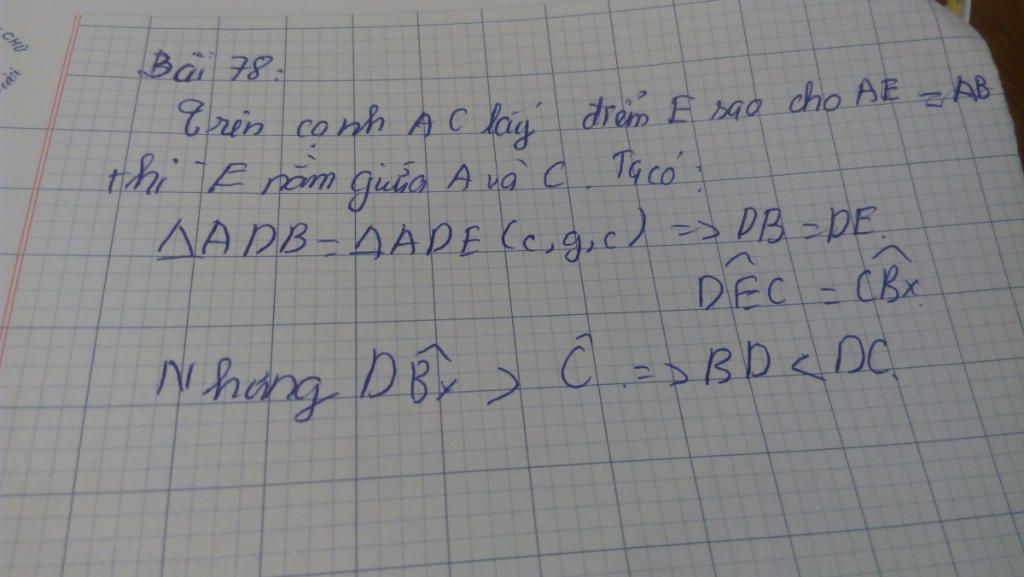 CHỮ
Bài 78:
Trên cạnh AC lấy điểm E sao cho AE = AB
thì E nằm giữa A và C. Ta có:
ΔADB = ΔADE (c,g,c) => DB = DE.
\widehat{DEC} = \widehat{CBx}.
Nhưng \widehat{DBx} > \widehat{C} => BD < DC.